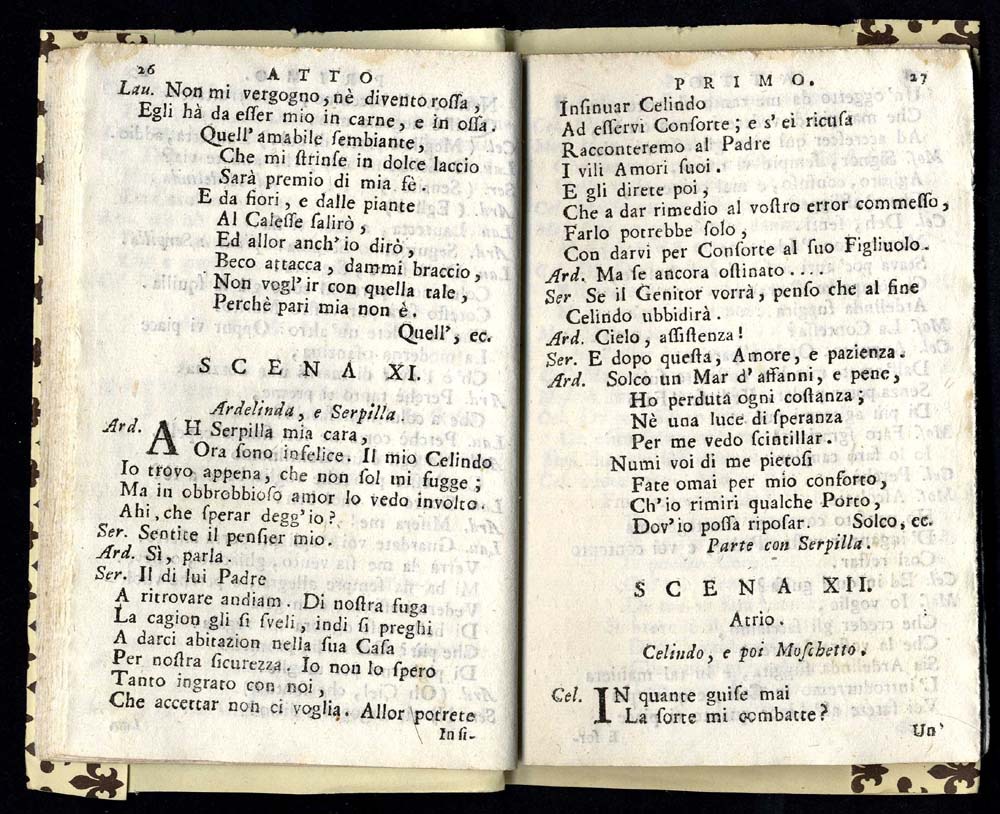 26
ATTO
Lau. Non mi vergogno, nè divento rossa,
Egli hà da esser mio in carne, e in ossa.
Quell' amabile sembiante,
Che mi strinse in dolce laccio
Sarà premio di mia fè.
E da fiori, e dalle piante
Al Calesse salirò,
Ed allor anch' io dirò,
Beco attacca, dammi braccio,
Non vogl' ir con quella tale,
Perchè pari mia non è.
Quell', ec.
SCENA XI.
Ardelinda, e Serpilla.
Ard. AH Serpilla mia cara,
Ora sono infelice. Il mio Celindo
Io trovo appena, che non sol mi fugge;
Ma in obbrobbioso amor lo vedo involto.
Ahi, che sperar degg' io?
Ser. Sentite il pensier mio.
Ard. Sì, parla.
Ser. Il di lui Padre
A ritrovare andiam. Di nostra fuga
La cagion gli si sveli, indi si preghi
A darci abitazion nella sua Casa
Per nostra sicurezza. Io non lo spero
Tanto ingrato con noi,
Che accettar non ci voglia. Allor potrete
Insi-
PRIMO.
27
Insinuar Celindo
Ad esservi Consorte; e s' ei ricusa
Racconteremo al Padre
I vili Amori suoi.
E gli direte poi,
Che a dar rimedio al vostro error commesso,
Farlo potrebbe solo,
Con darvi per Consorte al suo Figliuolo.
Ard. Ma se ancora ostinato....
Ser Se il Genitor vorrà, penso che al fine
Celindo ubbidirà.
Ard. Cielo, assistenza!
Ser. E dopo questa, Amore, e pazienza.
Ard. Solco un Mar d' affanni, e pene,
Ho perduta ogni costanza;
Nè una luce di speranza
Per me vedo scintillar.
Numi voi di me pietosi
Fate omai per mio conforto,
Ch' io rimiri qualche Porto,
Dov' io possa riposar. Solco, ec.
Parte con Serpilla.
SCENA XII.
Atrio.
Celindo, e poi Moschetto.
Cel. IN quante guise mai
La sorte mi combatte?
Un'